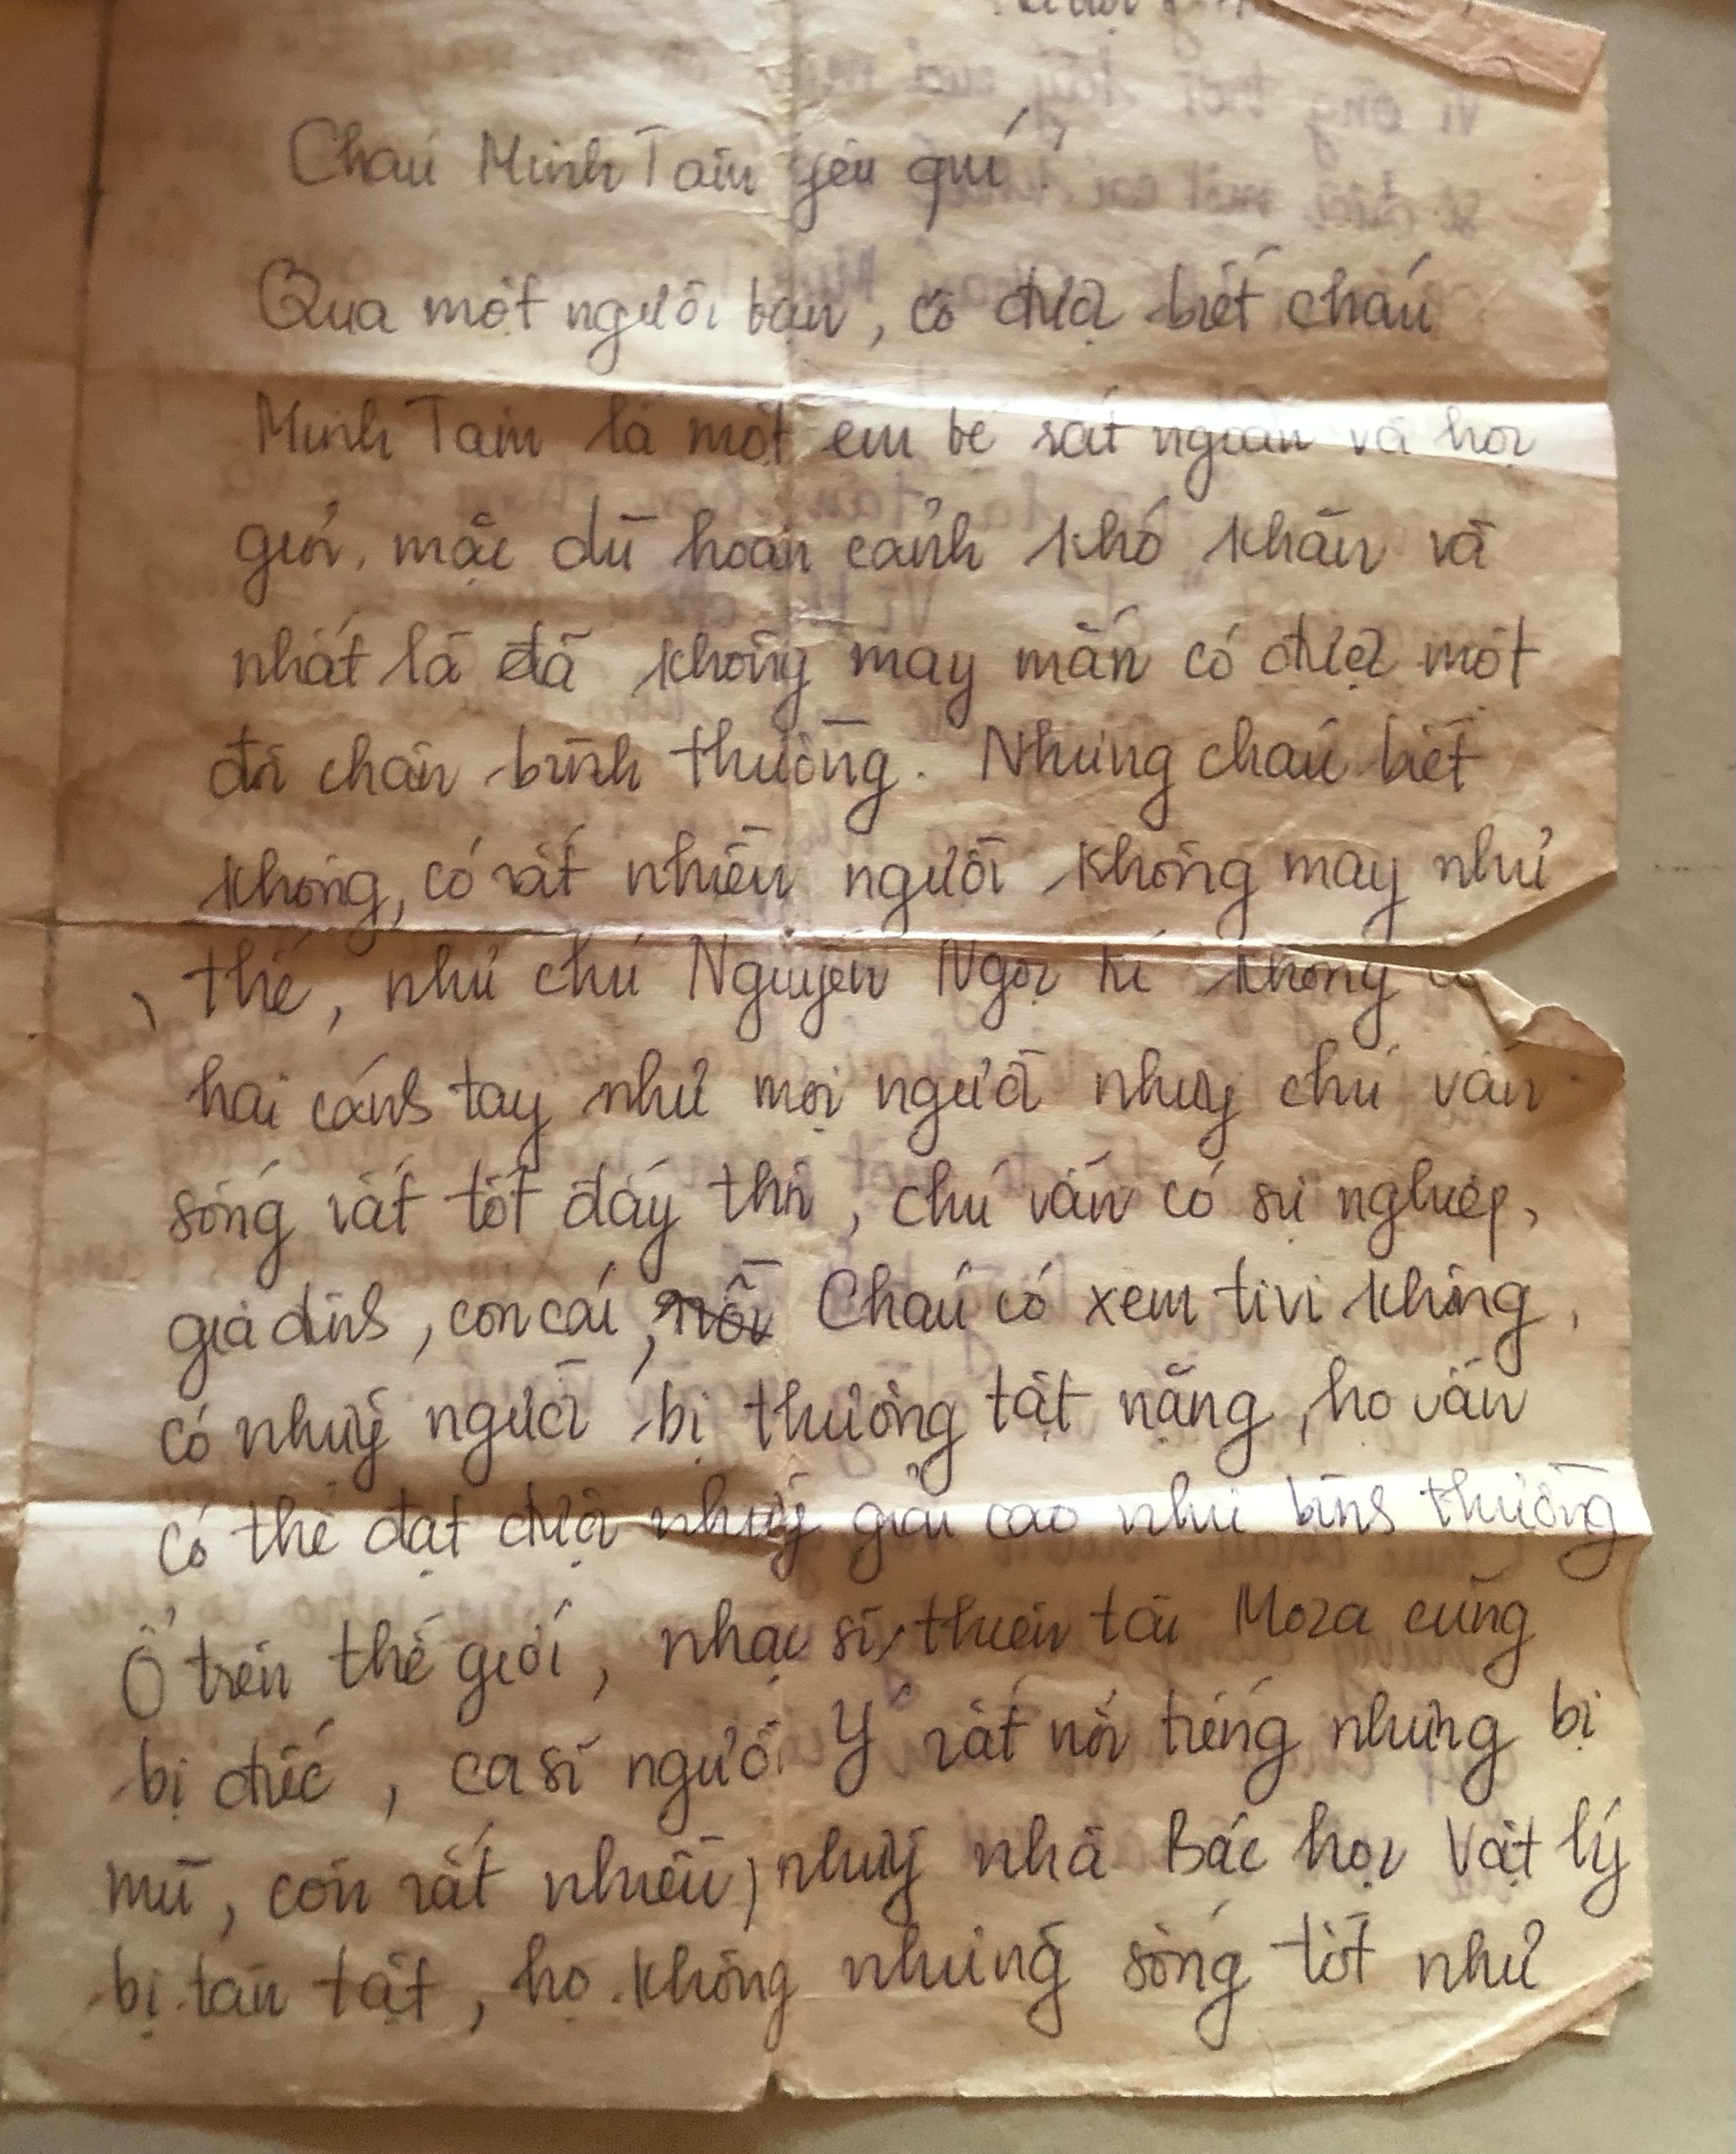 Cháu Minh Tâm yêu quí !
Qua một người bạn, cô được biết cháu
Minh Tâm là một em bé rất ngoan và học
giỏi, mặc dù hoàn cảnh khó khăn và
nhất là đã không may mắn có được một
đôi chân bình thường. Nhưng cháu biết
không, có rất nhiều người không may như
thế, như chú Nguyễn Ngọc Kí không có
hai cánh tay như mọi người nhưng chú vẫn
sống rất tốt đấy thôi, chú vẫn có sự nghiệp,
gia đình, con cái, Cháu có xem tivi không,
có những người bị thương tật nặng, họ vẫn
có thể đạt được những giải cao như bình thường
Ở trên thế giới, nhạc sĩ thiên tài Moza cũng
bị điếc, ca sĩ người Ý rất nổi tiếng nhưng bị
mù, còn rất nhiều, những nhà Bác học Vật lý
bị tàn tật, họ không những sống tốt như